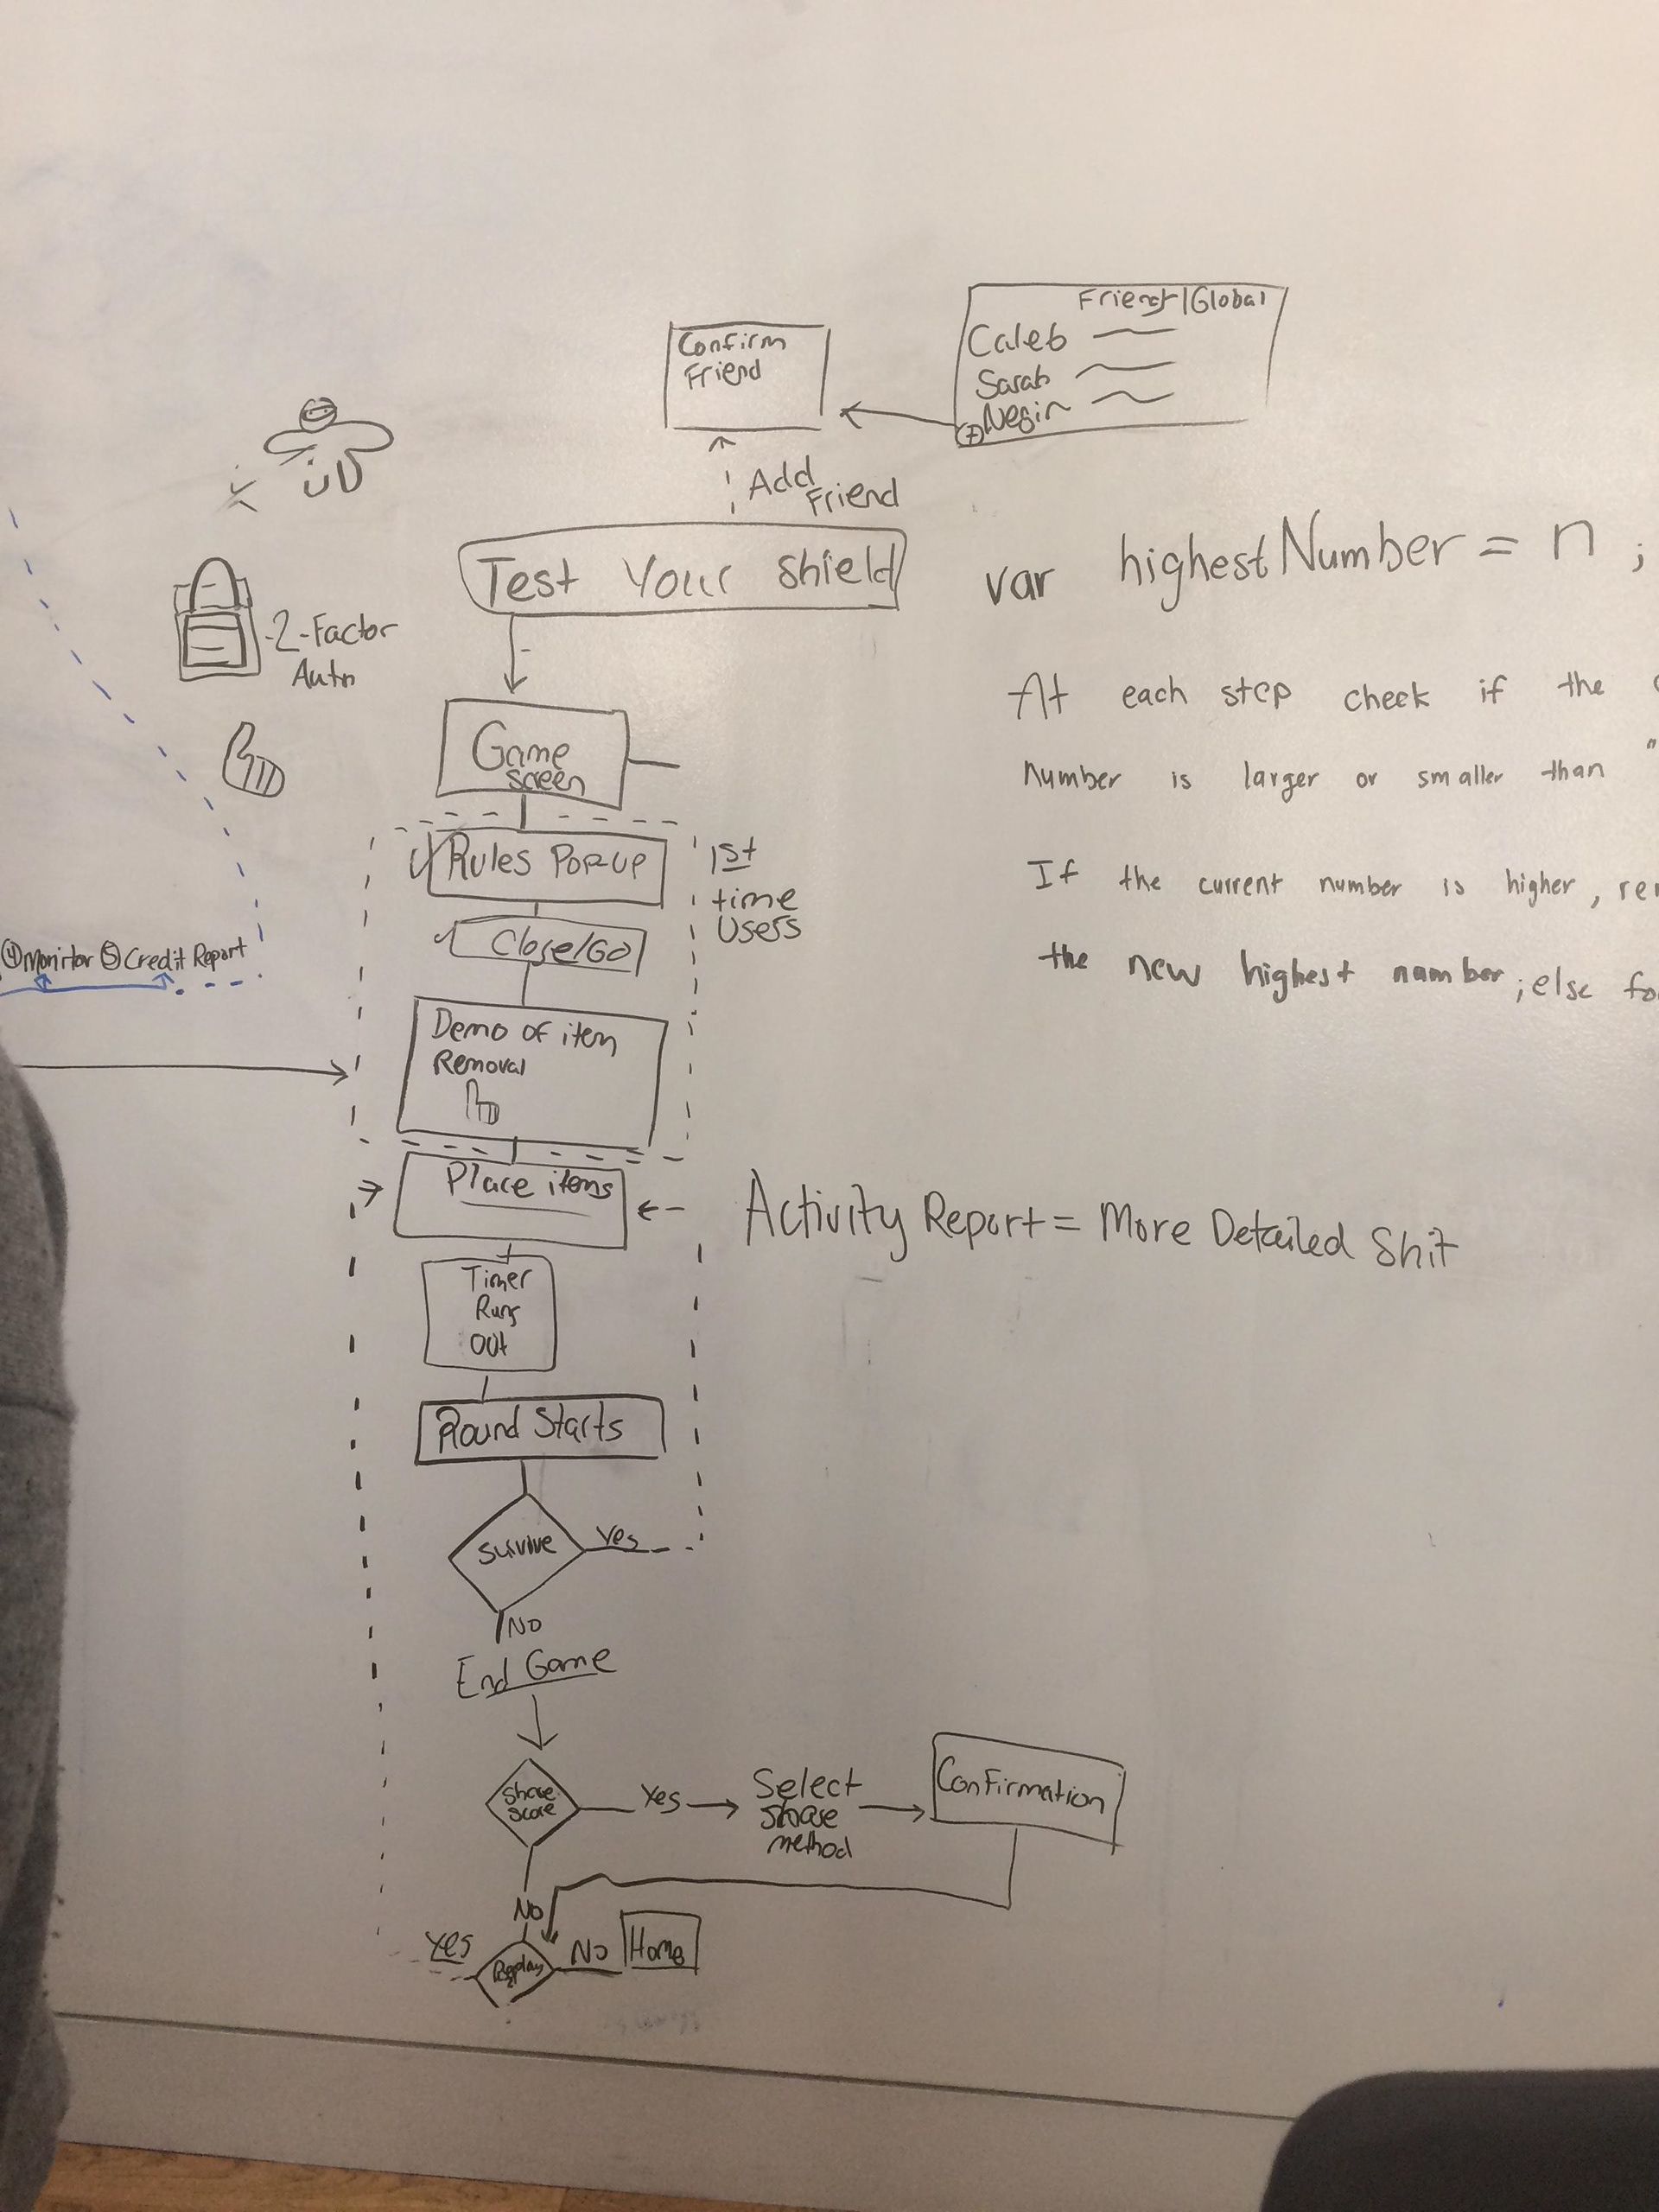 Confirm
Friend
Friend|Global
Caleb
Sarah
Negin
Add
Friend
Test Your Shield
var highestNumber = n ;
2-Factor
Auth
At each step check if the
number is larger or smaller than "
If the current number is higher,
the new highest number; else
Game
Screen
Rules Pop-up
1st
time
Users
Close/Go
④Monitor ⑤Credit Report
Demo of item
Removal
Place items
Activity Report = More Detailed Shit
Timer
Runs
Out
Round Starts
Survive
Yes
No
End Game
Share
Score
Yes
Select
Share
method
Confirmation
No
Yes
Replay
No
Home